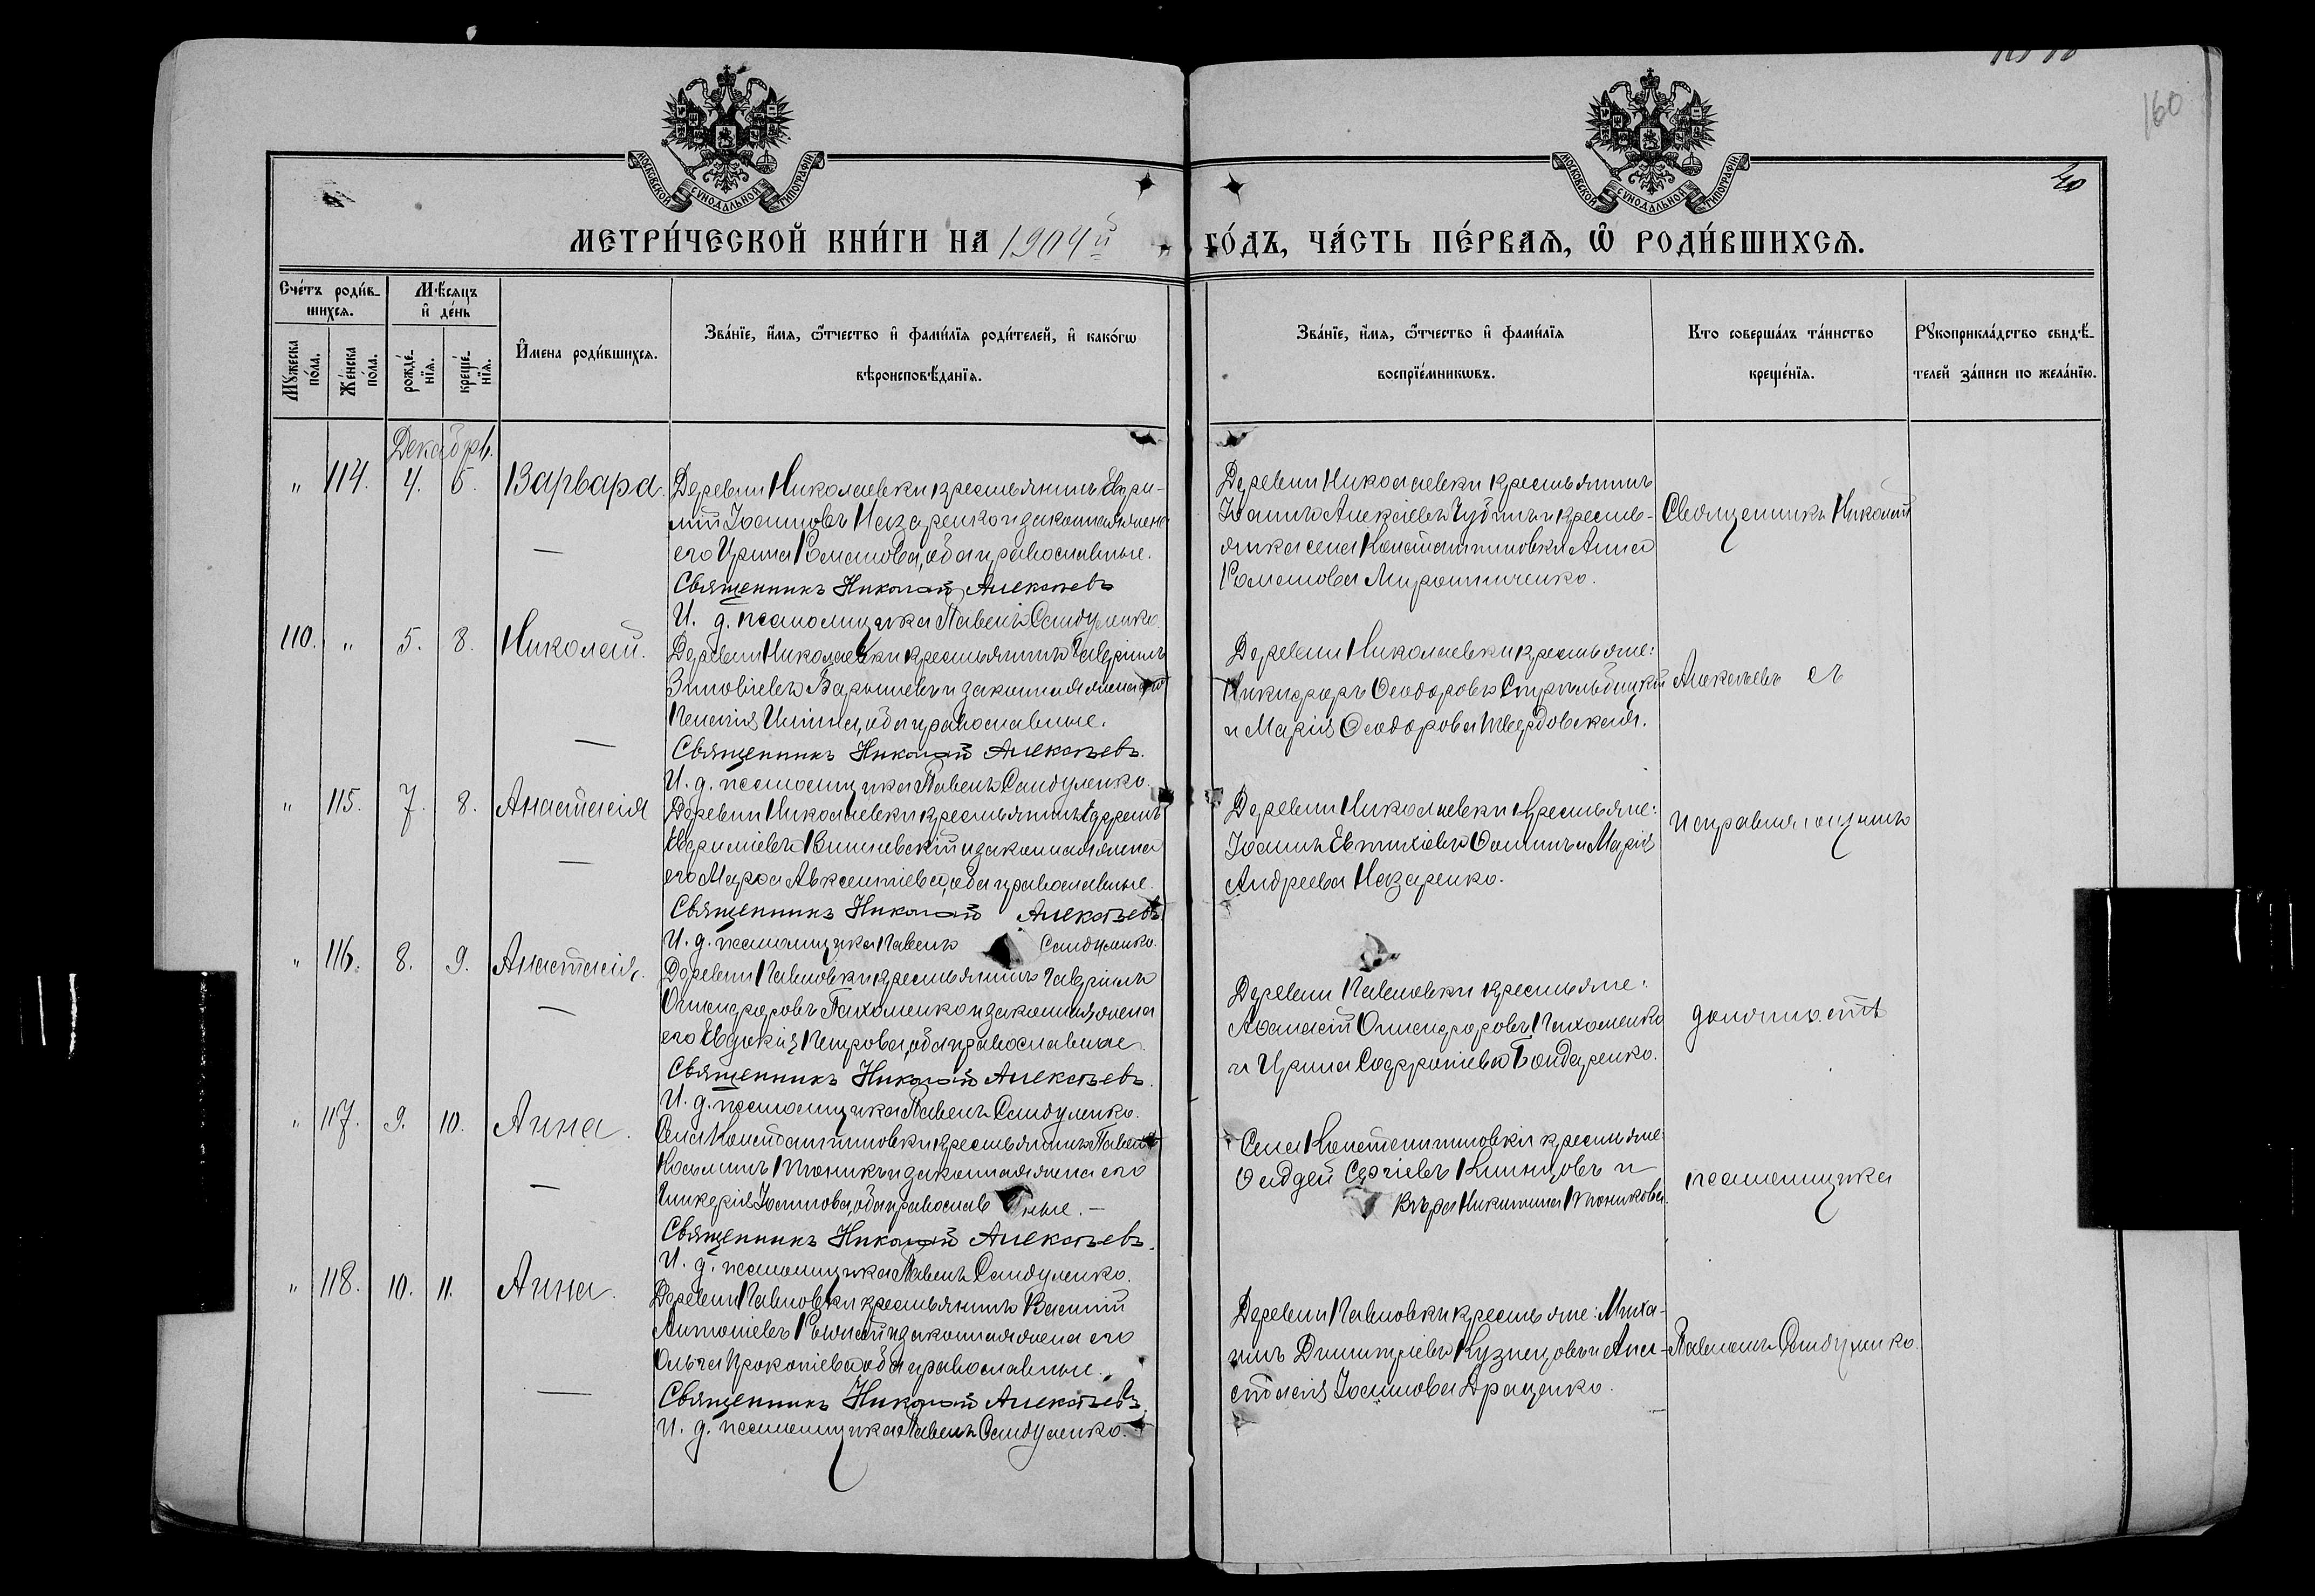 160
МОСКОВСКОЙ СѴНОДАЛЬНОЙ ТИПОГРАФІИ
МОСКОВСКОЙ СѴНОДАЛЬНОЙ ТИПОГРАФІИ
МЕТРИ́ЧЕСКОЙ КНИ́ГИ НА 1904й ГО́ДЪ, ЧА́СТЬ ПЕ́РВАЯ, Ѡ РОДИ́ВШИХСЯ.
Сче́тъ роди́вшихся.
Мꙋ́жеска по́ла.
Же́нска по́ла.
Мѣ́сяцъ и҆ де́нь
рожде́нїя.
креще́нїя.
И҆мена роди́вшихся.
Зва́нїе, и҆́мя, ѻ҆́тчество и҆ фами́лїя роди́телей, и҆ како́гѡ
вѣроисповѣ́данїя.
Зва́нїе, и҆́мя, ѻ҆́тчество и҆ фами́лїя
воспрїе́мникѡвъ.
Кто соверша́лъ та́инство
креще́нїя.
Рꙋкоприкла́дство свидѣ́-
телей за́писи по жела́нїю.
Декабрь.
" 114. 4. 5. Варвара.
Деревни Николаевки крестьянинъ Евфи-
мій Іоанновъ Назаренко и законная жена
его Ирина Романова, оба православные.
Священникъ Николай Алексѣевъ
И. д. псаломщика Павелъ Сандуленко.
Деревни Николаевки крестьянинъ
Іоаннъ Алексіевъ Чубинъ и кресть-
янка села Константиновки Анна
Романова Мирошниченко.
Священникъ Николай
110. " 5. 8. Николай.
Деревни Николаевки крестьянинъ Гавріилъ
Зиновіевъ Барышевъ и законная жена его
Пелагія Ильина, оба православные.
Священникъ Николай Алексѣевъ.
И. д. псаломщика Павелъ Сандуленко.
Деревни Николаевки крестьяне:
Никифоръ Ѳеодоровъ Стрѣльбицкій
и Марія Ѳеодорова Твердовская.
Алексѣевъ съ
" 115. 7. 8. Анастасія
Деревни Николаевки крестьянинъ Ефремъ
Евфиміевъ Вишневскій и законная жена
его Марѳа Авксентіева, оба православные.
Священникъ Николай Алексѣевъ
И. д. псаломщика Павелъ Сандуленко.
Деревни Николаевки крестьяне:
Іоаннъ Евтихіевъ Ѳоминъ и Марія
Андреева Назаренко.
исправляющимъ
" 116. 8. 9. Анастасія.
Деревни Павловки крестьянинъ Гавріилъ
Онисифоровъ Пахоменко и законная жена
его Евдокія Петрова, оба православные.
Священникъ Николай Алексѣевъ.
И. д. псаломщика Павелъ Сандуленко.
Деревни Павловки крестьяне:
Аѳанасій Онисифоровъ Пахоменко
и Ирина Софроніева Бондаренко.
должность
" 117. 9. 10. Анна.
Села Константиновки крестьянинъ Павелъ
Косьминъ Плюшикъ и законная жена его
Гликерія Іоаннова, оба православные.
Священникъ Николай Алексѣевъ.
И. д. псаломщика Павелъ Сандуленко.
Села Константиновки крестьяне
Ѳаддей Сергіевъ Клинцовъ и
Вѣра Никитина
псаломщика
" 118. 10. 11. Анна.
Деревни Павловки крестьянинъ Василій
Антоніевъ и законная жена его
Ольга Прокопіева, оба православные.
Священникъ Николай Алексѣевъ.
И. д. псаломщика Павелъ Сандуленко.
Деревни Павловки крестьяне: Миха-
илъ Димитріевъ Кузнецовъ и Ана-
стасія Іоаннова Драценко.
Павломъ Сандуленко.